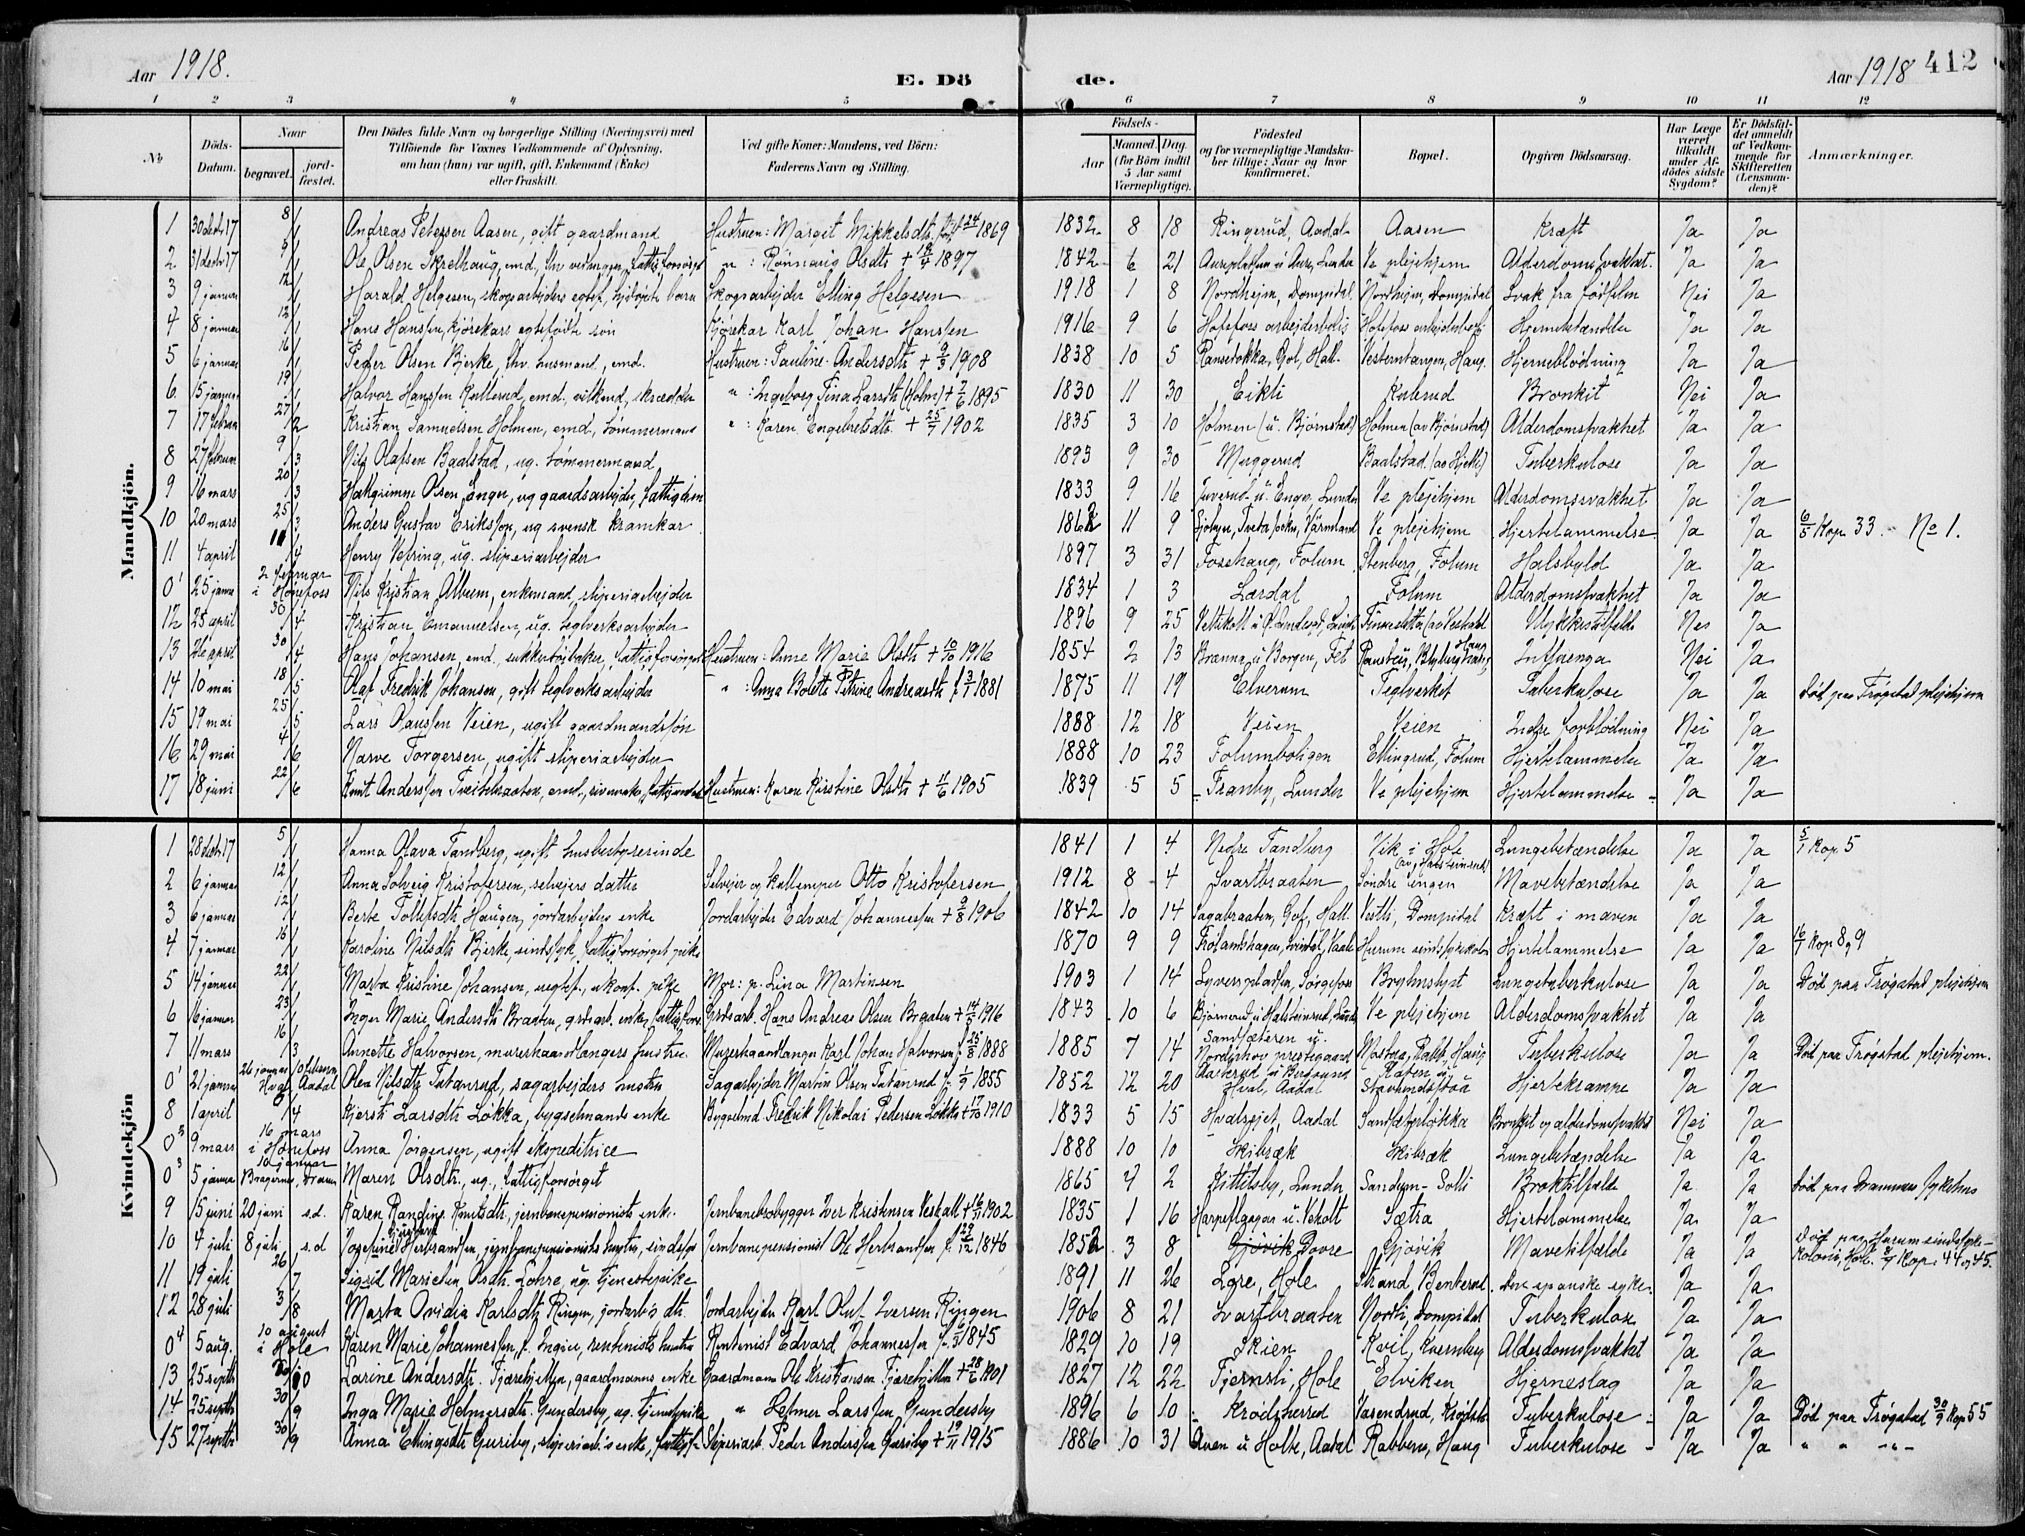 Aar 1918.
E. Döde.
Aar 1918
412
1 2 3 4 5 6 7 8 9 10 11 12
No
Döds-Datum.
Naar
begravet.
jord-fæstet.
Den Dödes fulde Navn og borgerlige Stilling (Næringsvei) med Tilföiende for Voxnes Vedkommende af Oplysning, om han (hun) var ugift, gift, Enkemand (Enke) eller fraskilt.
Ved gifte Koner: Mandens, ved Börn: Faderens Navn og Stilling.
Födsels-
Aar
Maaned. Dag.
(for Börn indtil 5 Aar samt Værnepligtige).
Födested og for værnepligtige Mandskaber tillige: Naar og hvor konfirmeret.
Bopæl.
Opgiven Dödsaarsag.
Har Læge været tilkaldt under Afdödes sidste Sygdom?
Er Dödsfaldet anmeldt af Vedkommende for Skifteretten (Lensmanden)?
Anmærkninger.
Mandkjön.
1 30 decbr 17 8/1 Andreas Petersen Aasen, gift gaardmand Hustruen: Margit Mikkelsdtr. 1869 1832 8 18 Ringerud, Aadal Aasen Kræft Ja Ja
2 31 decbr 17 5/1 Ole Olsen Skrelhaug, emd, fattigforsørget " : Rønnaug Olsdtr + 1897 1842 6 21 Ve plejehjem Alderdomssvakhet. Ja Ja
3 9 januar 12/1 Harald Helgesen, skogsarbejders egtef. hjdøpte barn Skogsarbejder Elling Helgesen 1918 1 8 Nordhejm, Dompidal Nordhejm, Dompidal Svak fra fødselen Nei Ja
4 8 januar 12/1 Hans Hanssen, kjørekars egtefødte søn Kjørekar Karl Johan Hanssen 1916 9 6 Hofsfoss arbejderbolig Hofsfoss arbejderbolig Hjernebetændelse Ja Ja
5 6 januar 16/1 Peder Olsen Bjerke, fhv. husmand, emd. Hustruen: Pauline Andersdtr + 1908 1838 10 5 Gol, Hall. Vesterntangen, Haug. Hjerneblødning Ja Ja
6 15 januar 19/1 Halvor Hanssen Kullerud, emd, vilkmd, skrædder " : Ingeborg Tina Larsdtr (Holm) + 2/6 1895 1830 11 30 Eikli Kulerud Bronkit Nei Ja
7 17 februar 27/2 Kristian Samuelsen Holmen, emd, tømmermand " : Karen Engebretsdtr. + 25/7 1902 1835 3 10 Holmen (u. Bjørnstad) Holmen (av Bjørnstad) Alderdomssvakhet Ja Ja
8 27 februar 9/3 Nils Olafsen Baalstad, ug. tømmermand 1893 9 30 Muggerud Baalstad (av Hjelle) Tuberkulose Ja Ja
9 16 mars 20/3 Halgrimme Olsen Enger, ug gaardsarbejder, fattiglem 1833 9 16 Juverud u. Enge, Lunder Ve plejehjem Alderdomssvakhet Ja Ja
10 20 mars 25/3 Anders Gustav Eriksson, ug svensk kramkar 1862 11 9 Värmland Ve plejehjem Hjertelammelse Ja Ja 6/5 Kop 33. No 1.
11 4 april 11/4 Henry Vebring, ug. sliperiarbejder 1897 3 31 Fosshaug, Folum Stenberg, Folum Halsbyld Ja Ja
0¹ 25 januar 2 februar i Hønefoss Nils Kristian Album, enkemand, sliperiarbejder 1834 1 3 Lærdal Folum Alderdomssvakhet Ja Ja
12 25 april 30/4 Kristian Emanuelsen, ug. teglverksarbejder 1896 9 25 Ulykkestilfelde Nei Ja
13 26 april 30/4 Hans Johansen, emd. sukkertøjkoker, fattigforsørget Hustruen: Anne Marie Olsdtr + 1916 1854 2 13 Brænna u Borgen, Fet Haug Influenza Nei Ja
14 10 mai 18/5 Olaf Fredrik Johansen, gift teglverksarbejder " : Anna Bolette Petrine Andreasdtr f 3/1 1881 1875 11 19 Elverum Teglverket Tuberkulose Ja Ja Død paa Frøgstad plejehjem
15 19 mai 25/5 Lars Olaussen Veien, ugift gaardmandssøn 1888 12 18 Veien Veien Indre forblødning Nei Ja
16 29 mai 4/6 Narve Torgersen, ugift sliperiarbejder 1888 10 23 Folumboligen Ellingrud, Folum Hjertelammelse Ja Ja
17 18 juni 22/6 Knut Anderssen Tveitebraaten, emd. Hustruen: Karen Kirstine Olsdtr + 11/6 1905 1839 5 5 Tranby, Lunder Ve plejehjem Hjertelammelse Ja Ja
Kvindekjön
1 28 decbr 17 5/1 Hanna Olava Tandberg, ugift husbestyrerinde 1841 1 4 Nedre Tandberg Vik i Hole Lungebetændelse Ja Ja 5/1 Kop 5
2 6 januar 12/1 Anna Solveig Kristofersen, selvejers datter Selvejer og kullemper Otto Kristofersen 1912 8 4 Svartbraaten Søndre engen Mavebetændelse Ja Ja
3 6 januar 12/1 Berte Tollefsdtr Haugen, jordarbejders enke Jordarbejder Edvard Johannessen + 9/8 1906 1842 10 14 Sagabraaten, Gol, Hall. Vestli, Dompidal Kræft i maven Ja Ja
4 7 januar 16/1 Karoline Nilsdtr Bjerke, sindssyk, fattigforsørget pike 1870 9 9 Hurum sindssykekoloni Hjertelammelse Ja Ja 16/1 Kop 8 og 9
5 14 januar 22/1 Marta Kristine Johansen, uegtef., ukonf. pike Mor: p. Lina Martinsen 1903 1 14 Bryhnslyst Lungetuberkulose Ja Ja Død paa Frøgstad plejehjem
6 16 januar 23/1 Inger Marie Andersdtr Braaten, grdsarb. enke, fattigfors. Grdsarb. Hans Andreas Olsen Braaten + 14/5 1916 1843 10 6 Bjørnerud u Halsteinrud, Lunder Ve plejehjem Alderdomssvakhet Ja Ja
7 11 mars 16/3 Annette Halvorsen, murerhaandlangers hustru Murerhaandlanger Karl Johan Halvorsen f. 25/8 1888 1885 7 14 Sandsæteren u. Norderhov prestegaard Haug Tuberkulose Ja Ja Død paa Frøgstad plejehjem.
0¹ 21 januar 26 januar Hval, Aadal Olea Nilsdtr Tutanrud, sagarbejders hustru Sagarbejder Martin Olsen Tutanrud f. 1/9 1855 1852 12 20 Hval, Aadal Hjertekrampe Ja Ja
8 1 april 8/4 Kjersti Larsdtr Løkka, bygselmands enke Bygselmd Fredrik Nikolai Pedersen Løkka + 17/10 1910 1833 5 15 Hvalsejet, Aadal Sandsæterløkka Bronkit og alderdomssvakhet Nei Ja
0² 9 mars 16 mars i Hønefoss Anna Jørgensen, ugift ekspeditrice 1888 10 10 Skibræk Skibræk Lungebetændelse Ja Ja
0³ 5 januar 10 januar Bragernes, Drammen Maren Olsdtr., ug., fattigforsørget 1865 4 2 Kittilsby, Lunder Sandum - Solli Broktilfælde Ja Ja Død paa Drammens sykehus
9 15 juni 20 juni s.d. Karen Randine Knutsdtr, jernbanepensionists enke Jernbanebrobygger Iver Kristensen Veskalt + 16/11 1902 1835 1 16 Harpeflagan u. Veholt Sætra Hjertelammelse Ja Ja
10 4 juli 8 juli s.d Josefine Gustava Herbrandsen, jernbanepensionists hustru, sindssyk Jernbanepensionist Ole Herbrandsen f. 29/12 1846 1852 3 8 Gjøvik Dovre Gjøvik Mavetilfælde Ja Ja Død paa Hurum sindssykekoloni, Kop. 44 og 45.
11 19 juli 26/7 Sigrid Marielen Olsdtr. Lohre, ug. tjenestepike 1891 11 26 Løre, Hole Strand, Benterud Den spanske syke Ja Ja
12 28 juli 3/8 Marta Ovidia Karlsdtr Ringen, jordarb's dtr. Jordarbejder Karl Oluf Iversen Ringen 1906 8 21 Svartbraaten Nordli, Dompidal Tuberkulose Ja Ja
0⁴ 5 aug. 10 august i Hole Karen Marie Johannessen, f. Ingier, rentenists hustru Rentenist Edvard Johannessen f. 1845 1829 10 19 Skien Kvil, Kvernberg Alderdomssvakhet Ja Ja
13 25 septbr Larine Andersdtr. Tjærebjellen, gaardmanns enke Gaardmann Ole Kristiansen Tjærebjellen + 28/2 1901 1827 12 22 Tjernsli, Hole Elviken Hjerneslag Ja Ja
14 25 septbr 30/9 Inga Marie Helmersdtr. Gundersby, ug. tjenestepike " Helmer Larssen Gundersby 1896 6 10 Krødsherred Vasendrud, Krødsh. Tuberkulose Ja Ja Død paa Frøgstad 30/9 Kop 55
15 27 septbr 30/9 Anna Ellingsdtr Guriby, sliperiarb.s enke, fattigf. Sliperiarb. Peder Anderssen Guriby + 19/11 1915 1886 10 31 Aven u Holte, Aadal Rabbern, Haug Tuberkulose Ja Ja " " "